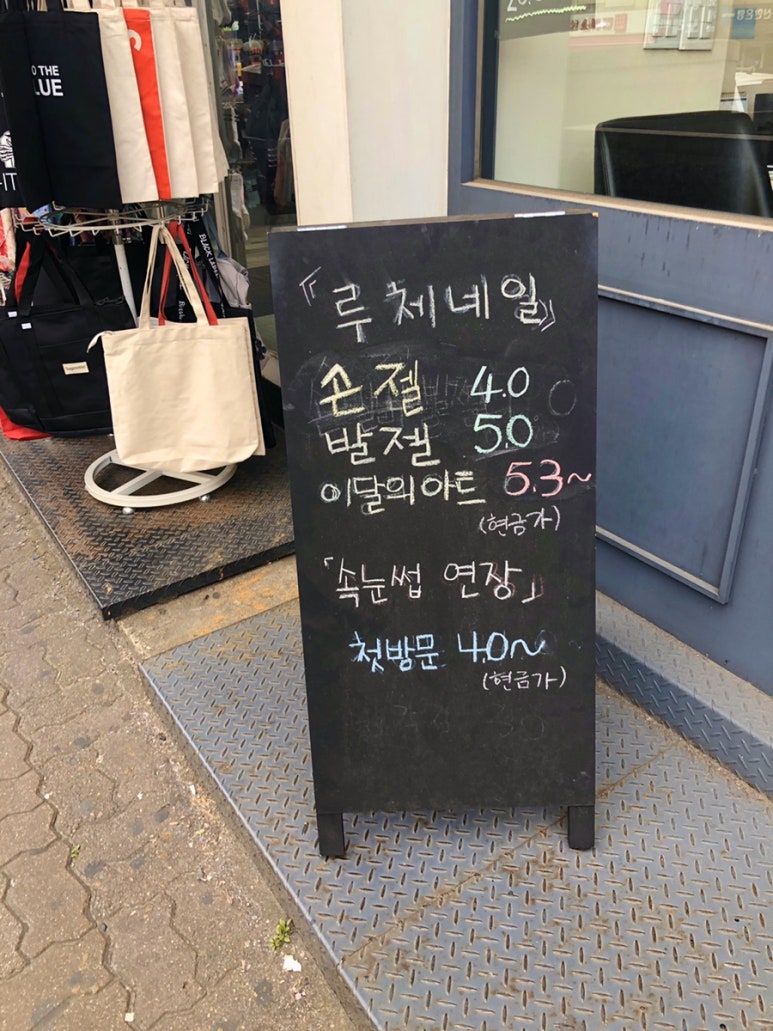 O THE
LUE
-IT
『루체네일』
손젤 4.0
발젤 5.0
이달의아트 5.3~
(현금가)
「속눈썹 연장」
첫방문 4.0~
(현금가)